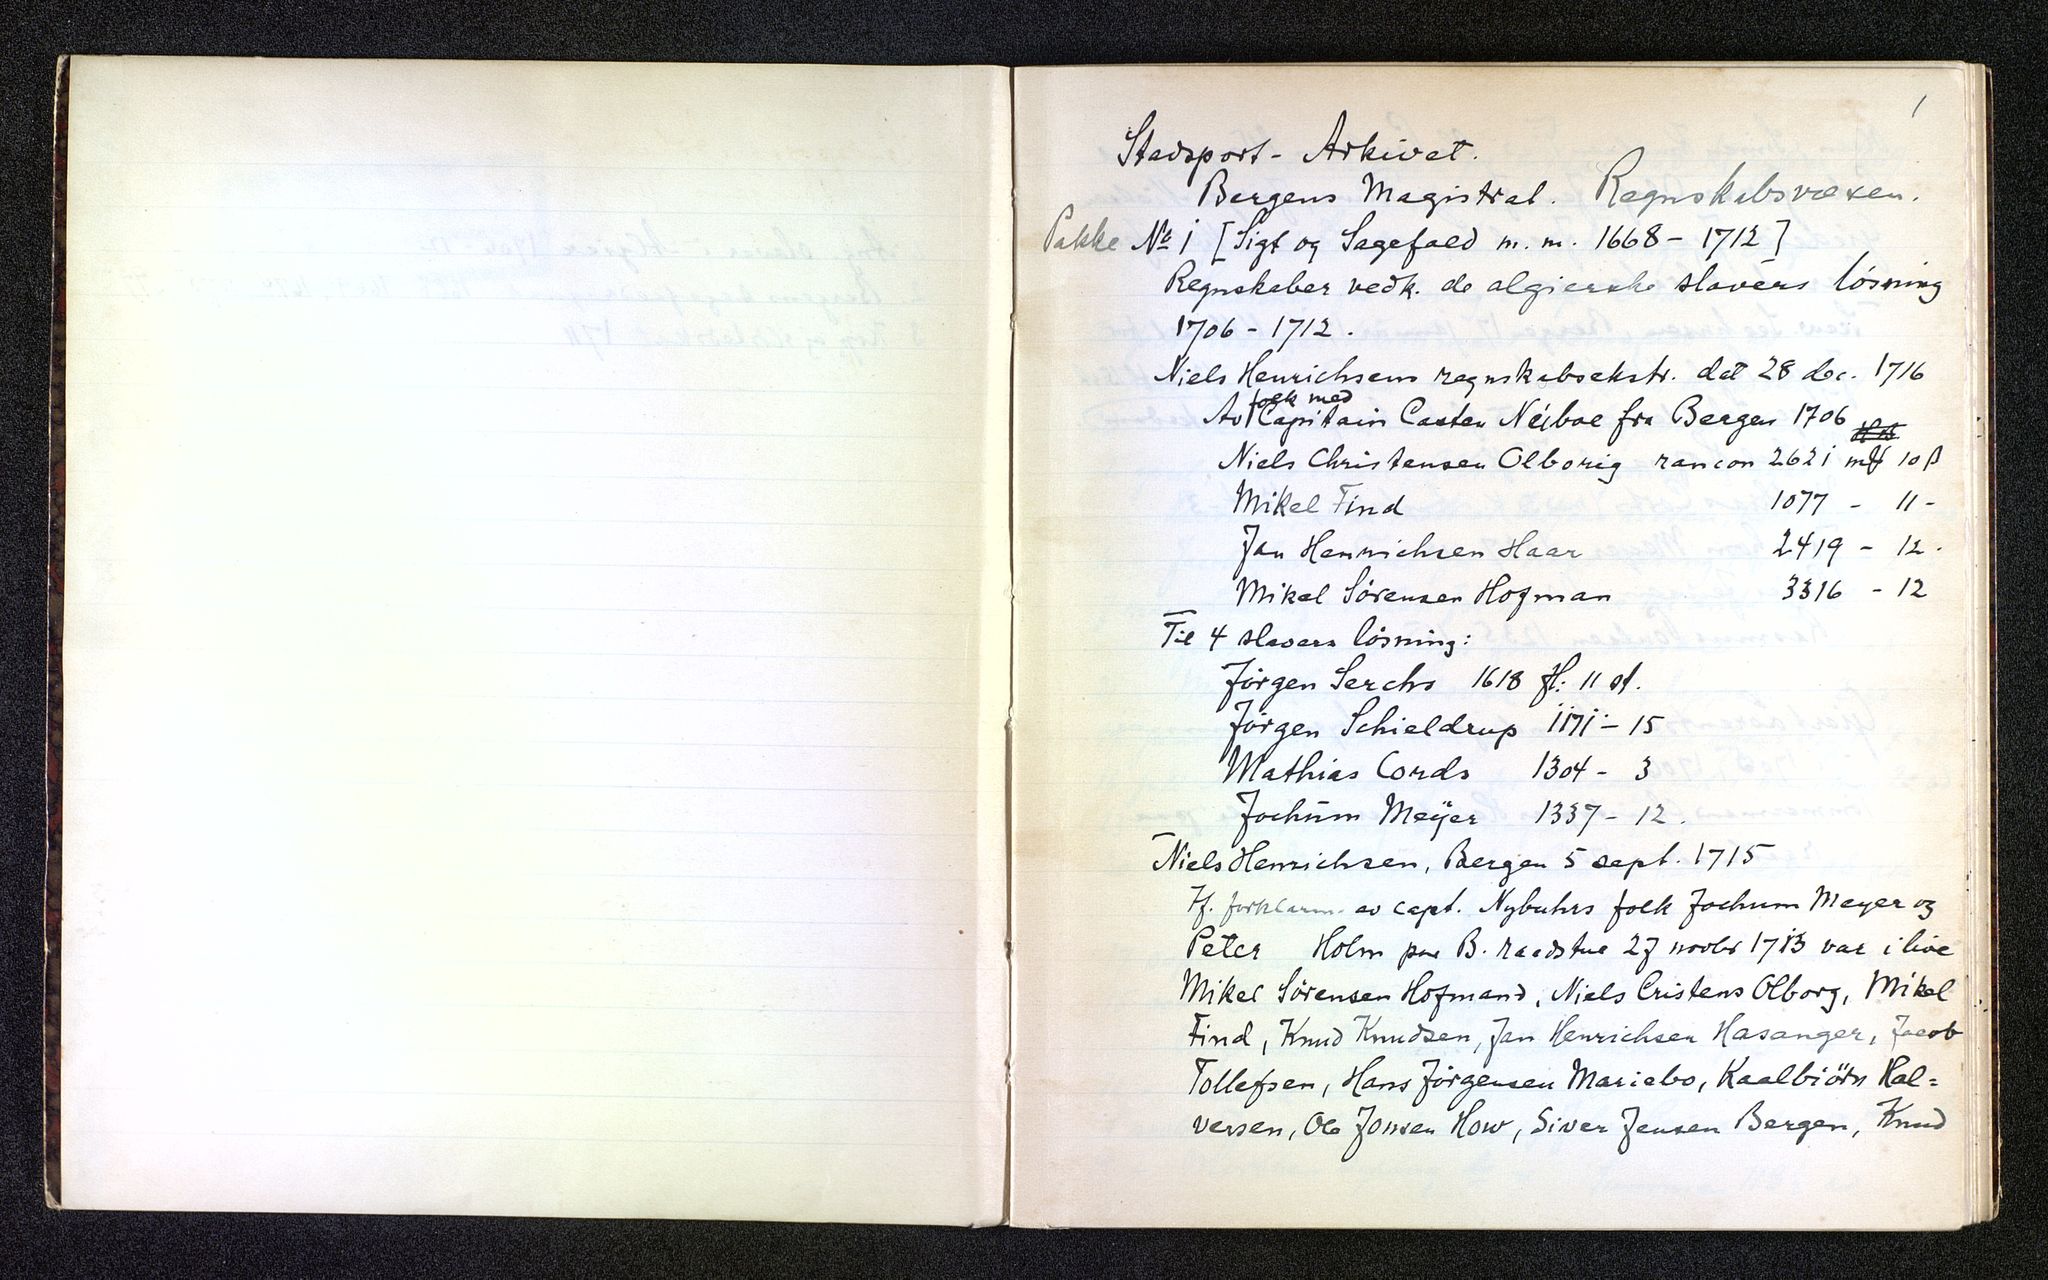 1
Stadsport-Arkivet.
Bergens Magistrat. Regnskabsvæsen.
Pakke No 1 [Sigt og Sagefald m. m. 1668-1712]
Regnskaber vedk. de algierske slavers løsning
1706-1712.
Niels Henrichsens regnskabsekstr. dat 28 dec. 1716
folk med
Av Capitain Casten Neiboe fra Bergen 1706
Niels Christensen Olborig rancon 2621 m# 10 ß
Mikel Find 1077 - 11 -
Jan Henrichsen Haar 2419 - 12 -
Mikel Sørensen Hofman 3316 - 12
Til 4 slavers løsning:
Jørgen Serchs 1618 fl: 11 st.
Jørgen Schieldrup 1171 - 15
Mathias Cords 1304 - 3
Jochum Meÿer 1337 - 12.
Niels Henrichsen, Bergen 5 sept. 1715
Jf. forklarin. av capt. Nybuhrs folk Jochum Meyer og
Peter Holm paa B. raadstue 27 novbr 1713 var i live
Mikel Sørensen Hofmand, Niels Cristens Olborg, Mikel
Find, Knud Knudsen, Jan Henrichsen Hasanger, Jacob
Tollefsen, Hans Jørgensen Mariebo, Kaalbiörn Hal=
versen, Ole Jonsen How, Siver Jensen Bergen, Knud